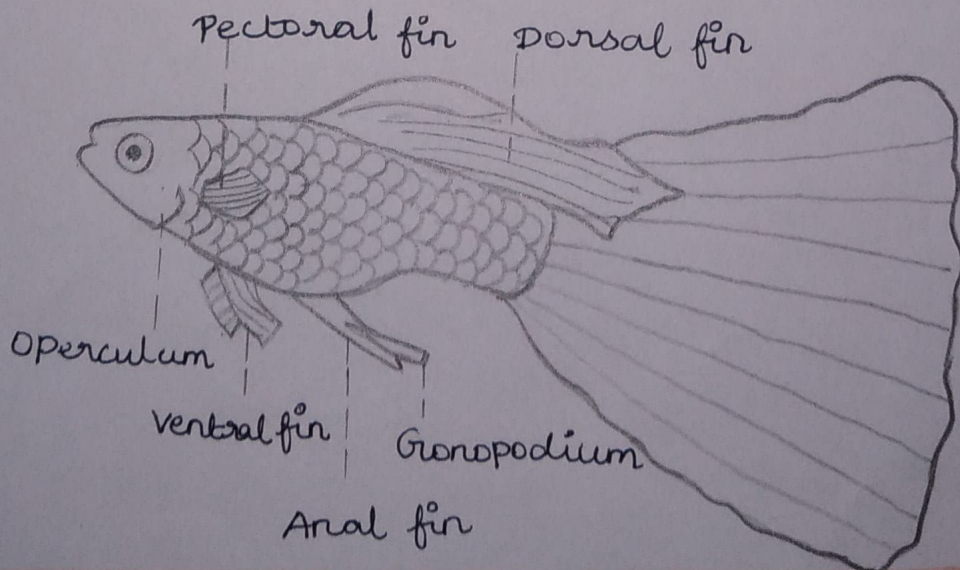 Pectoral fin
Dorsal fin
Operculum
Ventral fin
Gonopodium
Anal fin